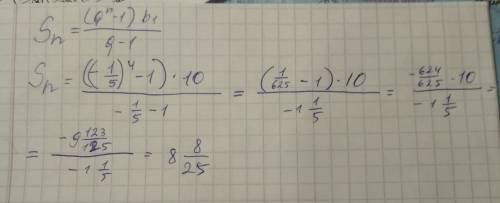 Sₙ = (qⁿ-1) b₁ / q-1
Sₙ = ((-1/5)⁴-1)·10 / -1/5 -1 = (1/625 -1)·10 / -1 1/5 = -624/625 ·10 / -1 1/5 =
= -9 123/125 / -1 1/5 = 8 8/25